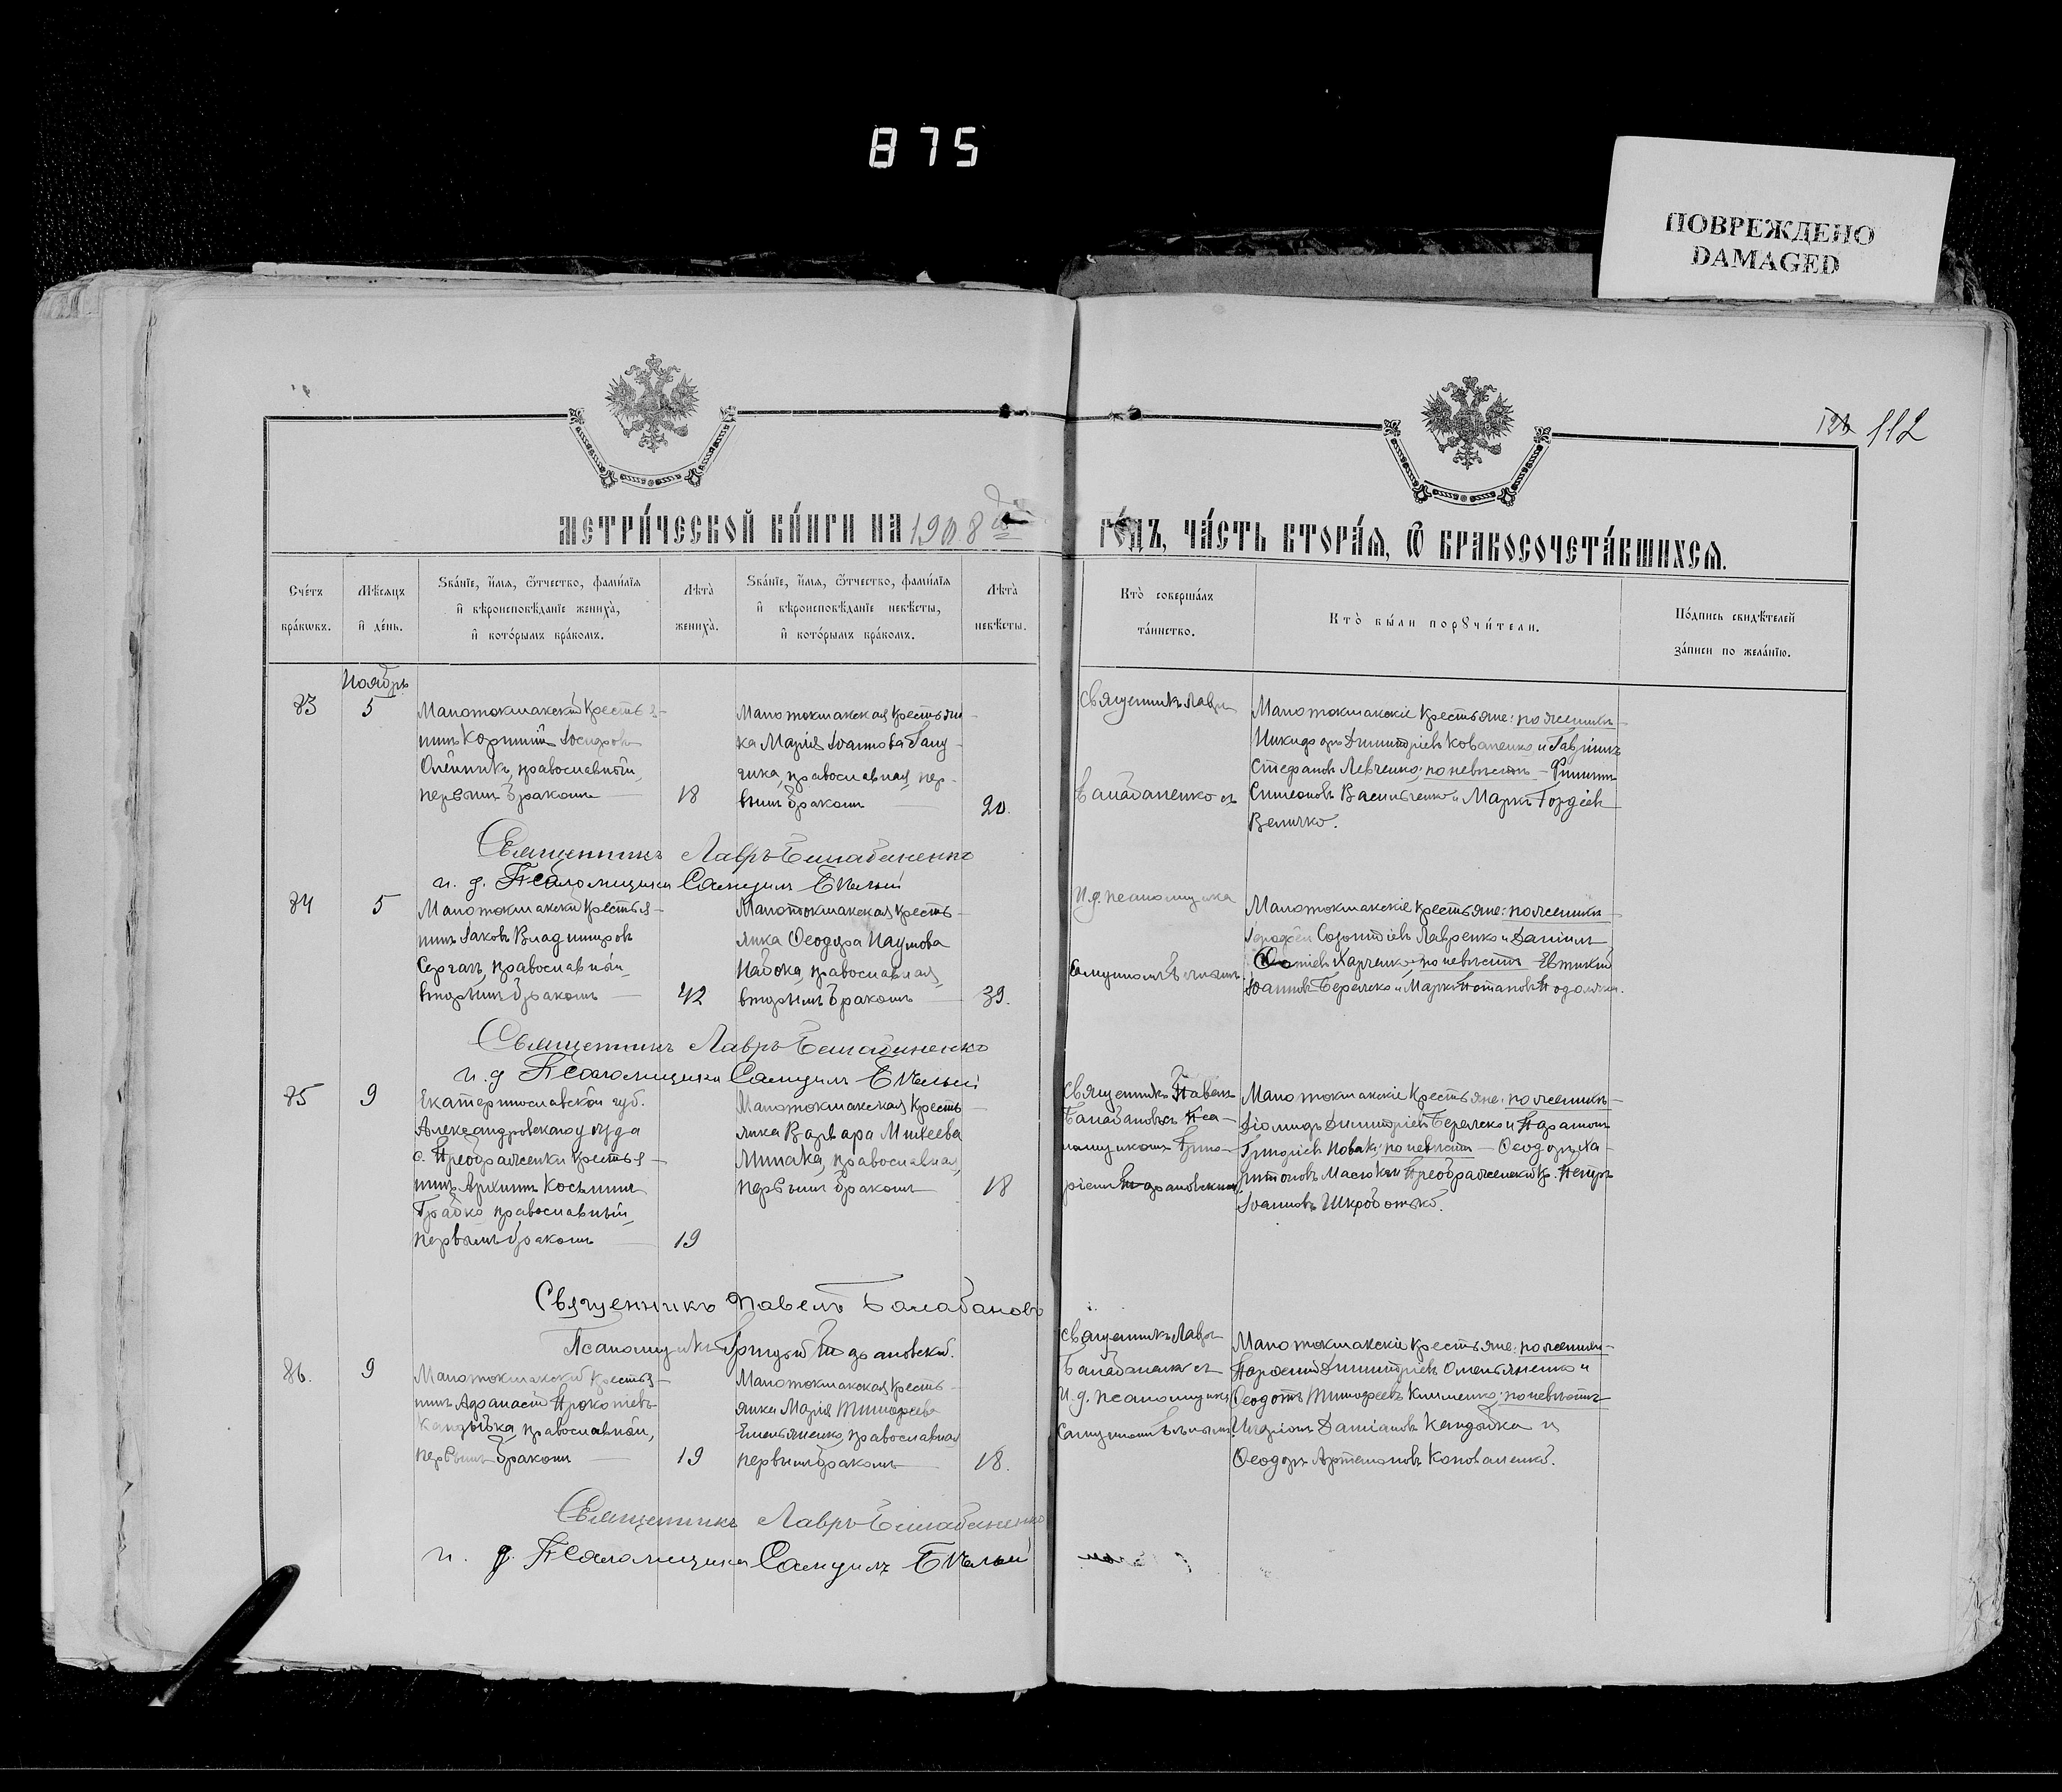 875
ПОВРЕЖДЕНО
DAMAGED
112
МЕТРИ́ЧЕСКОЙ КНИ́ГИ НА 1908 й
ГО́ДЪ, ЧА́СТЬ ВТОРА́Я, Ѽ БРАКОСОЧЕТА́ВШИХСЯ.
Сче́тъ бра́кωвъ.
Мѣ́сяцъ и҆ де́нь.
Ѕва́нїе, и҆́мя, ѻ҆́тчество, фами́лїя
и҆ вѣроисповѣ́данїе жениха̀,
и҆ кото́рымъ бра́комъ.
Лѣта̀ жениха̀.
Ѕва́нїе, и҆́мя, ѻ҆́тчество, фами́лїя
и҆ вѣроисповѣ́данїе невѣ́сты,
и҆ кото́рымъ бра́комъ.
Лѣта̀ невѣ́сты.
Кто̀ соверша́лъ
та́инство.
Кто̀ бы́ли порꙋчи́тели.
По́дпись свидѣ́телей
за́писи по жела́нїю.
Ноябрь
83
5
Малотокмакскій крестья-
нинъ Іосифовъ
Олейникъ, православный,
первымъ бракомъ
18
Малотокмакская крестьян-
ка Марія Іоаннова
православная, пер-
вымъ бракомъ
20.
Священникъ Лавръ
Балабаненко съ
Малотокмакскіе крестьяне: по женихѣ
Никифоръ Димитріевъ Коваленко и Гавріилъ
Стефановъ Левченко; по невѣстѣ – Филиппъ
Симеоновъ Васильченко и Маркъ Гордіевъ
Величко.
Священникъ Лавръ Балабаненко
и. д. Псаломщика Самуилъ Бѣлый
84
5
Малотокмакскій крестья-
нинъ Іаковъ Владимировъ
православный,
вторымъ бракомъ
42
Малотокмакская кресть-
янка Ѳеодора Наумова
Набока, православная,
вторымъ бракомъ
39.
И. д. псаломщика
Самуиломъ Бѣлымъ.
Малотокмакскіе крестьяне: по женихѣ
Лавренко и Даніилъ
Харченко; по невѣстѣ
Іоанновъ Берелько и Маркъ Потаповъ
Священникъ Лавръ Балабаненко
и. д. Псаломщика Самуилъ Бѣлый
85
9
Екатеринославской губ.
Александровскаго уѣзда
с. Преображенки крестья-
нинъ Архиппъ Косьминъ
Грабко, православный,
первымъ бракомъ
19
Малотокмакская кресть-
янка Варвара Михеева
Минака, православная,
первымъ бракомъ
18
Священникъ Павелъ
Балабановъ съ Пса-
ломщикомъ Григо-
ріемъ
Малотокмакскіе крестьяне: по женихѣ
Діомидъ Димитріевъ Берелько и Харлампій
Григоріевъ Новакъ; по невѣстѣ – Ѳеодоръ Ха-
ритоновъ Масюк и Преображенскій кр. Петръ
Іоанновъ Шкроботько.
Священникъ Павелъ Балабановъ
Псаломщикъ Григорій
86.
9
Малотокмакскій крестья-
нинъ Аѳанасій Прокопіевъ
Кандыбка, православный,
первымъ бракомъ
19
Малотокмакская кресть-
янка Марія Тимоѳеева
Емельяненко, православная
первымъ бракомъ
18.
Священникъ Лавръ
Балабаненко съ
И. д. псаломщика
Самуиломъ Бѣлымъ.
Малотокмакскіе крестьяне: по женихѣ
Димитріевъ Омельяненко и
Ѳеодотъ Тимоѳеевъ Клименко; по невѣстѣ
Иларіонъ Даміановъ Кандыбка и
Ѳеодоръ Артемоновъ Коноваленко.
Священникъ Лавръ Балабаненко
и. д. Псаломщика Самуилъ Бѣлый